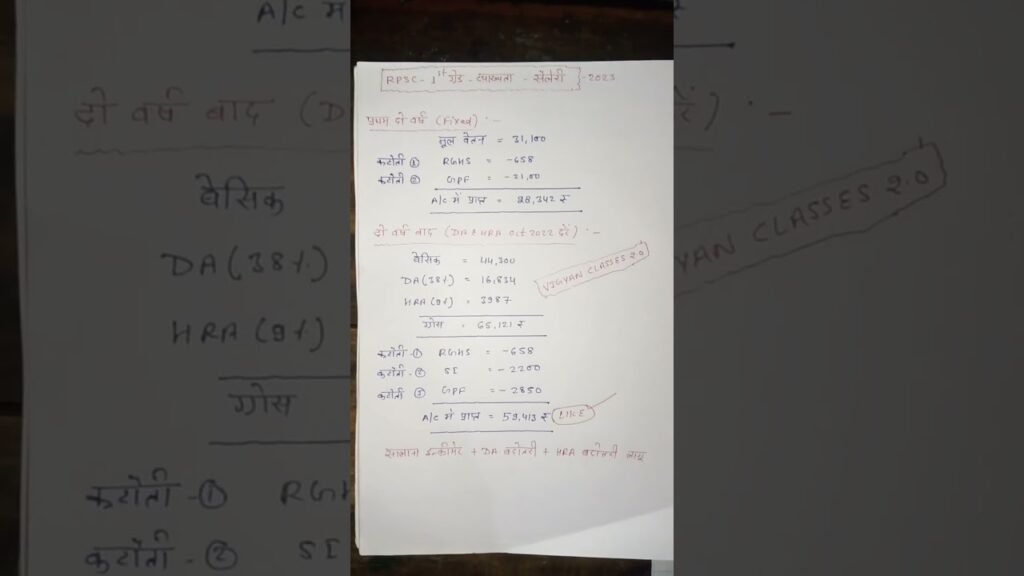 RPSC - 1st ग्रेड - व्याख्याता - सैलेरी - 2023
प्रथम दो वर्ष (Fixed) : -
मूल वेतन = 31,100
कटोती ① RGHS = -658
कटोती ② GPF = -21,00
A/c में प्राप्त = 28,342 ₹
दो वर्ष बाद (DA & HRA Oct 2022 दरें) : -
बेसिक = 44,300
DA (38%) = 16,834
HRA (9%) = 3987
ग्रोस = 65,121 ₹
VIGYAN CLASSES 2.0
कटोती -① RGHS = -658
कटोती -② SI = -2200
कटोती ③ GPF = -2850
A/c में प्राप्त = 59,413 ₹ LIKE
सालाना इन्क्रीमेंट + DA बढोतरी + HRA बढोतरी लागू
A/c में
दो वर्ष बाद (D
दरें) : -
बेसिक
DA (38%)
HRA (9%)
ग्रोस
YAN CLASSES 2.0
कटोती -① RGH
कटोती -② SI